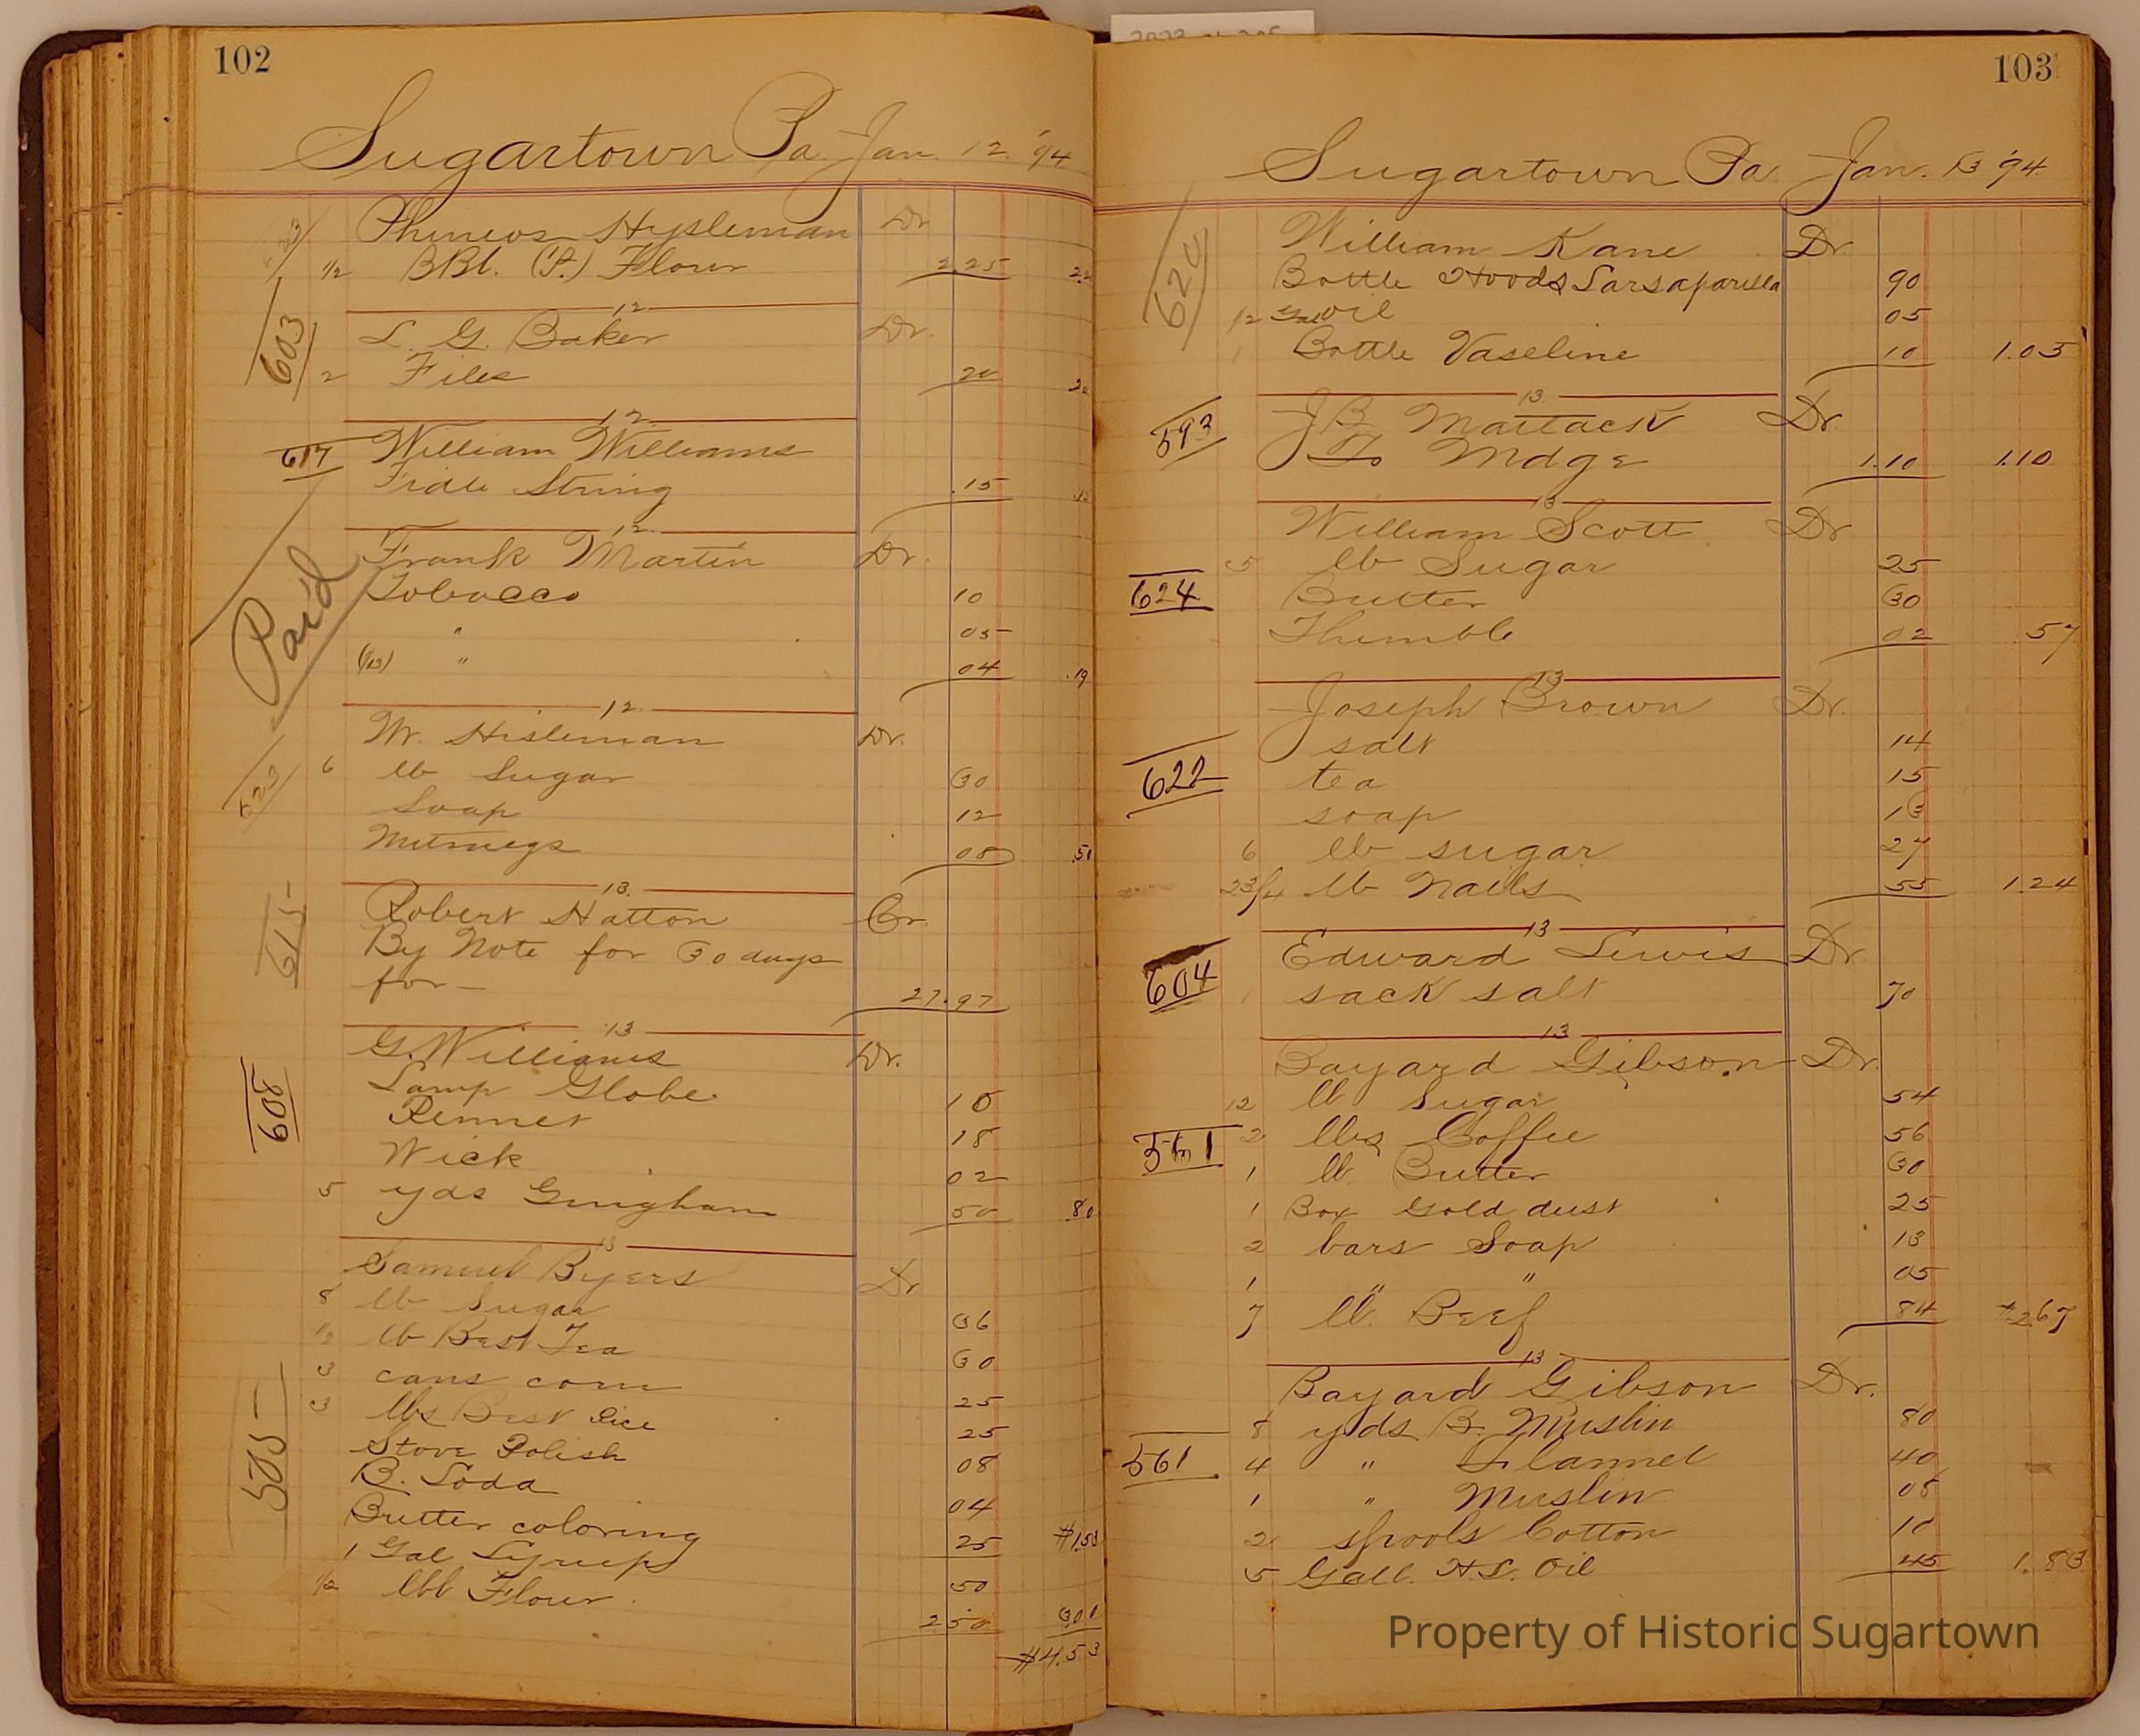 102
Sugartown Pa. Jan. 12. '94
Phineos Hysleman Dr
1/2 BBl. (P.) Flour 2.25
603
12
L. G. Baker Dr.
2 Files 20
12
617 William Williams
Fidle String .15
12
Frank Martin Dr.
Paid
Tobacco 10
" 05
(1/13) " 04 .19
12
W. Hisleman Dr.
623
6 lb Sugar 30
Soap 12
Nutmegs 08 .50
13.
615
Robert Hatton Cr.
By Note for 30 days
for— 27.97
13
G. Williams Dr.
608
Lamp Globe 10
Rennet 18
Wick 02
5 yds Gingham 50 .80
13
Samuel Byers Dr
8 lb Sugar 36
1/2 lb Best Tea 30
3 cans corn 25
3 lbs Best Rice 25
585
Stove Polish 08
B. Soda 04
Butter coloring 25 $1.53
1 Gal Syrup 50
1/2 bbl Flour 2.50 3.00
$4.53
103
Sugartown Pa. Jan. 13 '94
William Kane Dr.
620
Bottle Hoods Sarsaparilla 90
1/2 Gal oil 05
1 Bottle Vaseline 10 1.05
13.
593
J B Matlack Dr
To Mdge 1.10 1.10
13
William Scott Dr
5 lb Sugar 25
624
Butter 30
Thimble 02 .57
13
Joseph Brown Dr.
salt 14
622
tea 15
soap 13
6 lb sugar 27
23/4 lb Nails 55 1.24
13
Edward Lewis Dr.
604
1 sack salt 70
13
Bayard Gibson Dr.
12 lb Sugar 54
561
2 lbs Coffee 56
1 lb Butter 30
1 Box Gold dust 25
2 bars Soap 13
1 " " 05
7 lb. Beef 84 $2.67
13
Bayard Gibson Dr.
8 yds B. Muslin 80
561
4 " Flannel 40
1 " Muslin 08
2 spools Cotton 10
5 Gall. H.L. Oil 45 1.83
Property of Historic Sugartown